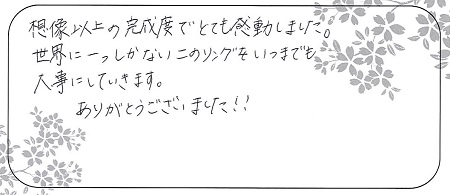 想像以上の完成度でとても感動しました。
世界に一つしかないこのリングをいつまでも
大事にしていきます。
ありがとうございました!!